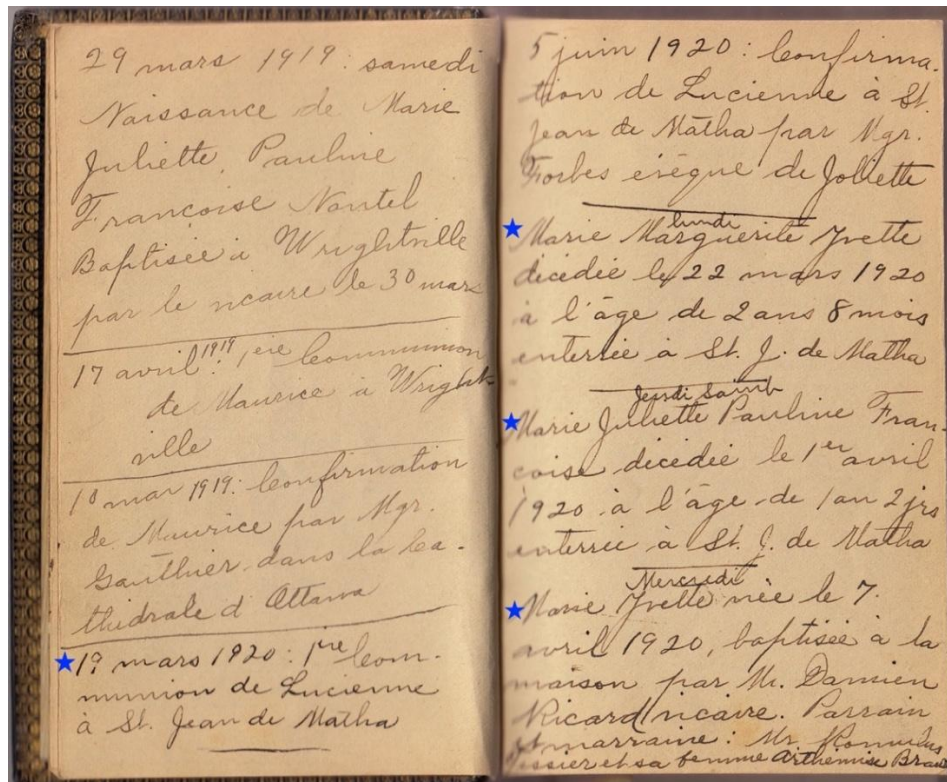 29 mars 1919: samedi
Naissance de Marie
Juliette, Pauline
Francoise Nantel
Baptisée à Wrightville
par le vicaire le 30 mars
17 avril 1919: 1ère Communion
de Maurice à Wright-
ville
mai 1919: Confirmation
de Maurice par Mgr.
Gauthier dans la Ca-
thédrale d'Ottawa
mars 1920: 1re Com-
munion de Lucienne
à St. Jean de Matha
5 juin 1920: Confirma-
tion de Lucienne à St.
Jean de Matha par Mgr.
Forbes évêque de Joliette
lundi
Marie Marguerite Yvette
décédée le 22 mars 1920
à l'âge de 2 ans 8 mois
enterrée à St. J. de Matha
Jeudi Saint
Marie Juliette Pauline Fran-
coise décédée le 1er avril
1920 à l'âge de 1 an 2 jrs
enterrée à St. J. de Matha
Mercredi
Marie Yvette née le 7
avril 1920, baptisée à la
maison par Mr. Damien
Ricard vicaire. Parrain
et marraine: Mr
et sa femme Arthémise